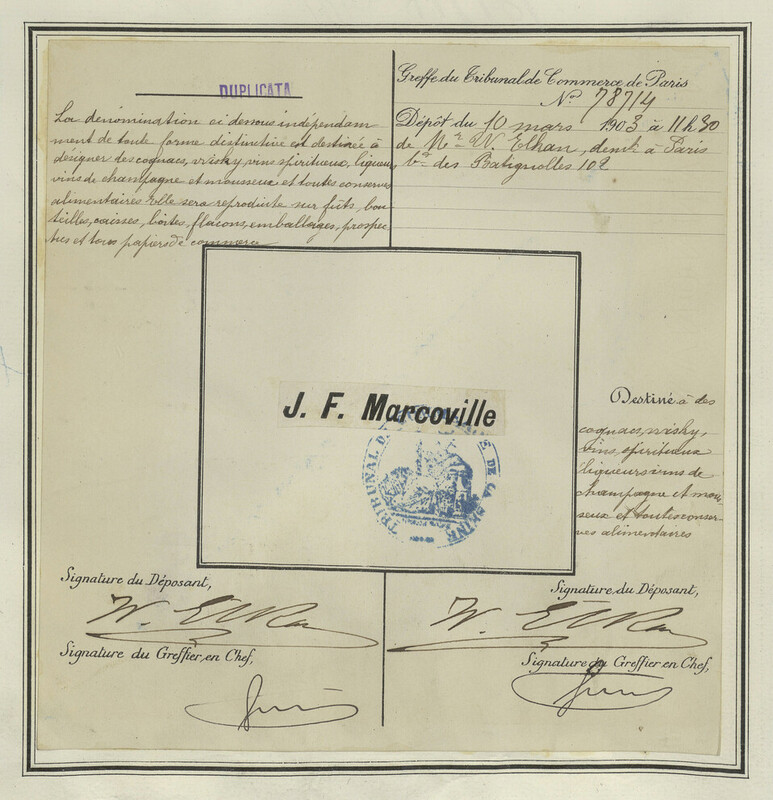 DUPLICATA
La dénomination ci dessous indépendam
ment de toute forme distinctive est destinée à
désigner des cognacs, wisky, vins spiritueux, liqueurs
vins de champagne et mousseux et toutes conserves
alimentaires Elle sera reproduite sur fûts, bou
teilles, caisses, boîtes, flacons, emballages, prospec
tus et tous papiers de commerce
Greffe du Tribunal de Commerce de Paris
No 78714
Dépôt du 10 mars 1903 à 11h30
de Mr W. Elkan, demt à Paris
bd des Batignolles 102
J. F. Marcoville
TRIBUNAL DE LA SEINE
Destiné à des
cognacs, wisky,
vins, spiritueux
liqueurs vins de
champagne et mous-
seux et toutes conser-
ves alimentaires
Signature du Déposant,
W. Elkan
Signature du Greffier en Chef,
Signature du Déposant,
W. Elkan
Signature du Greffier en Chef,